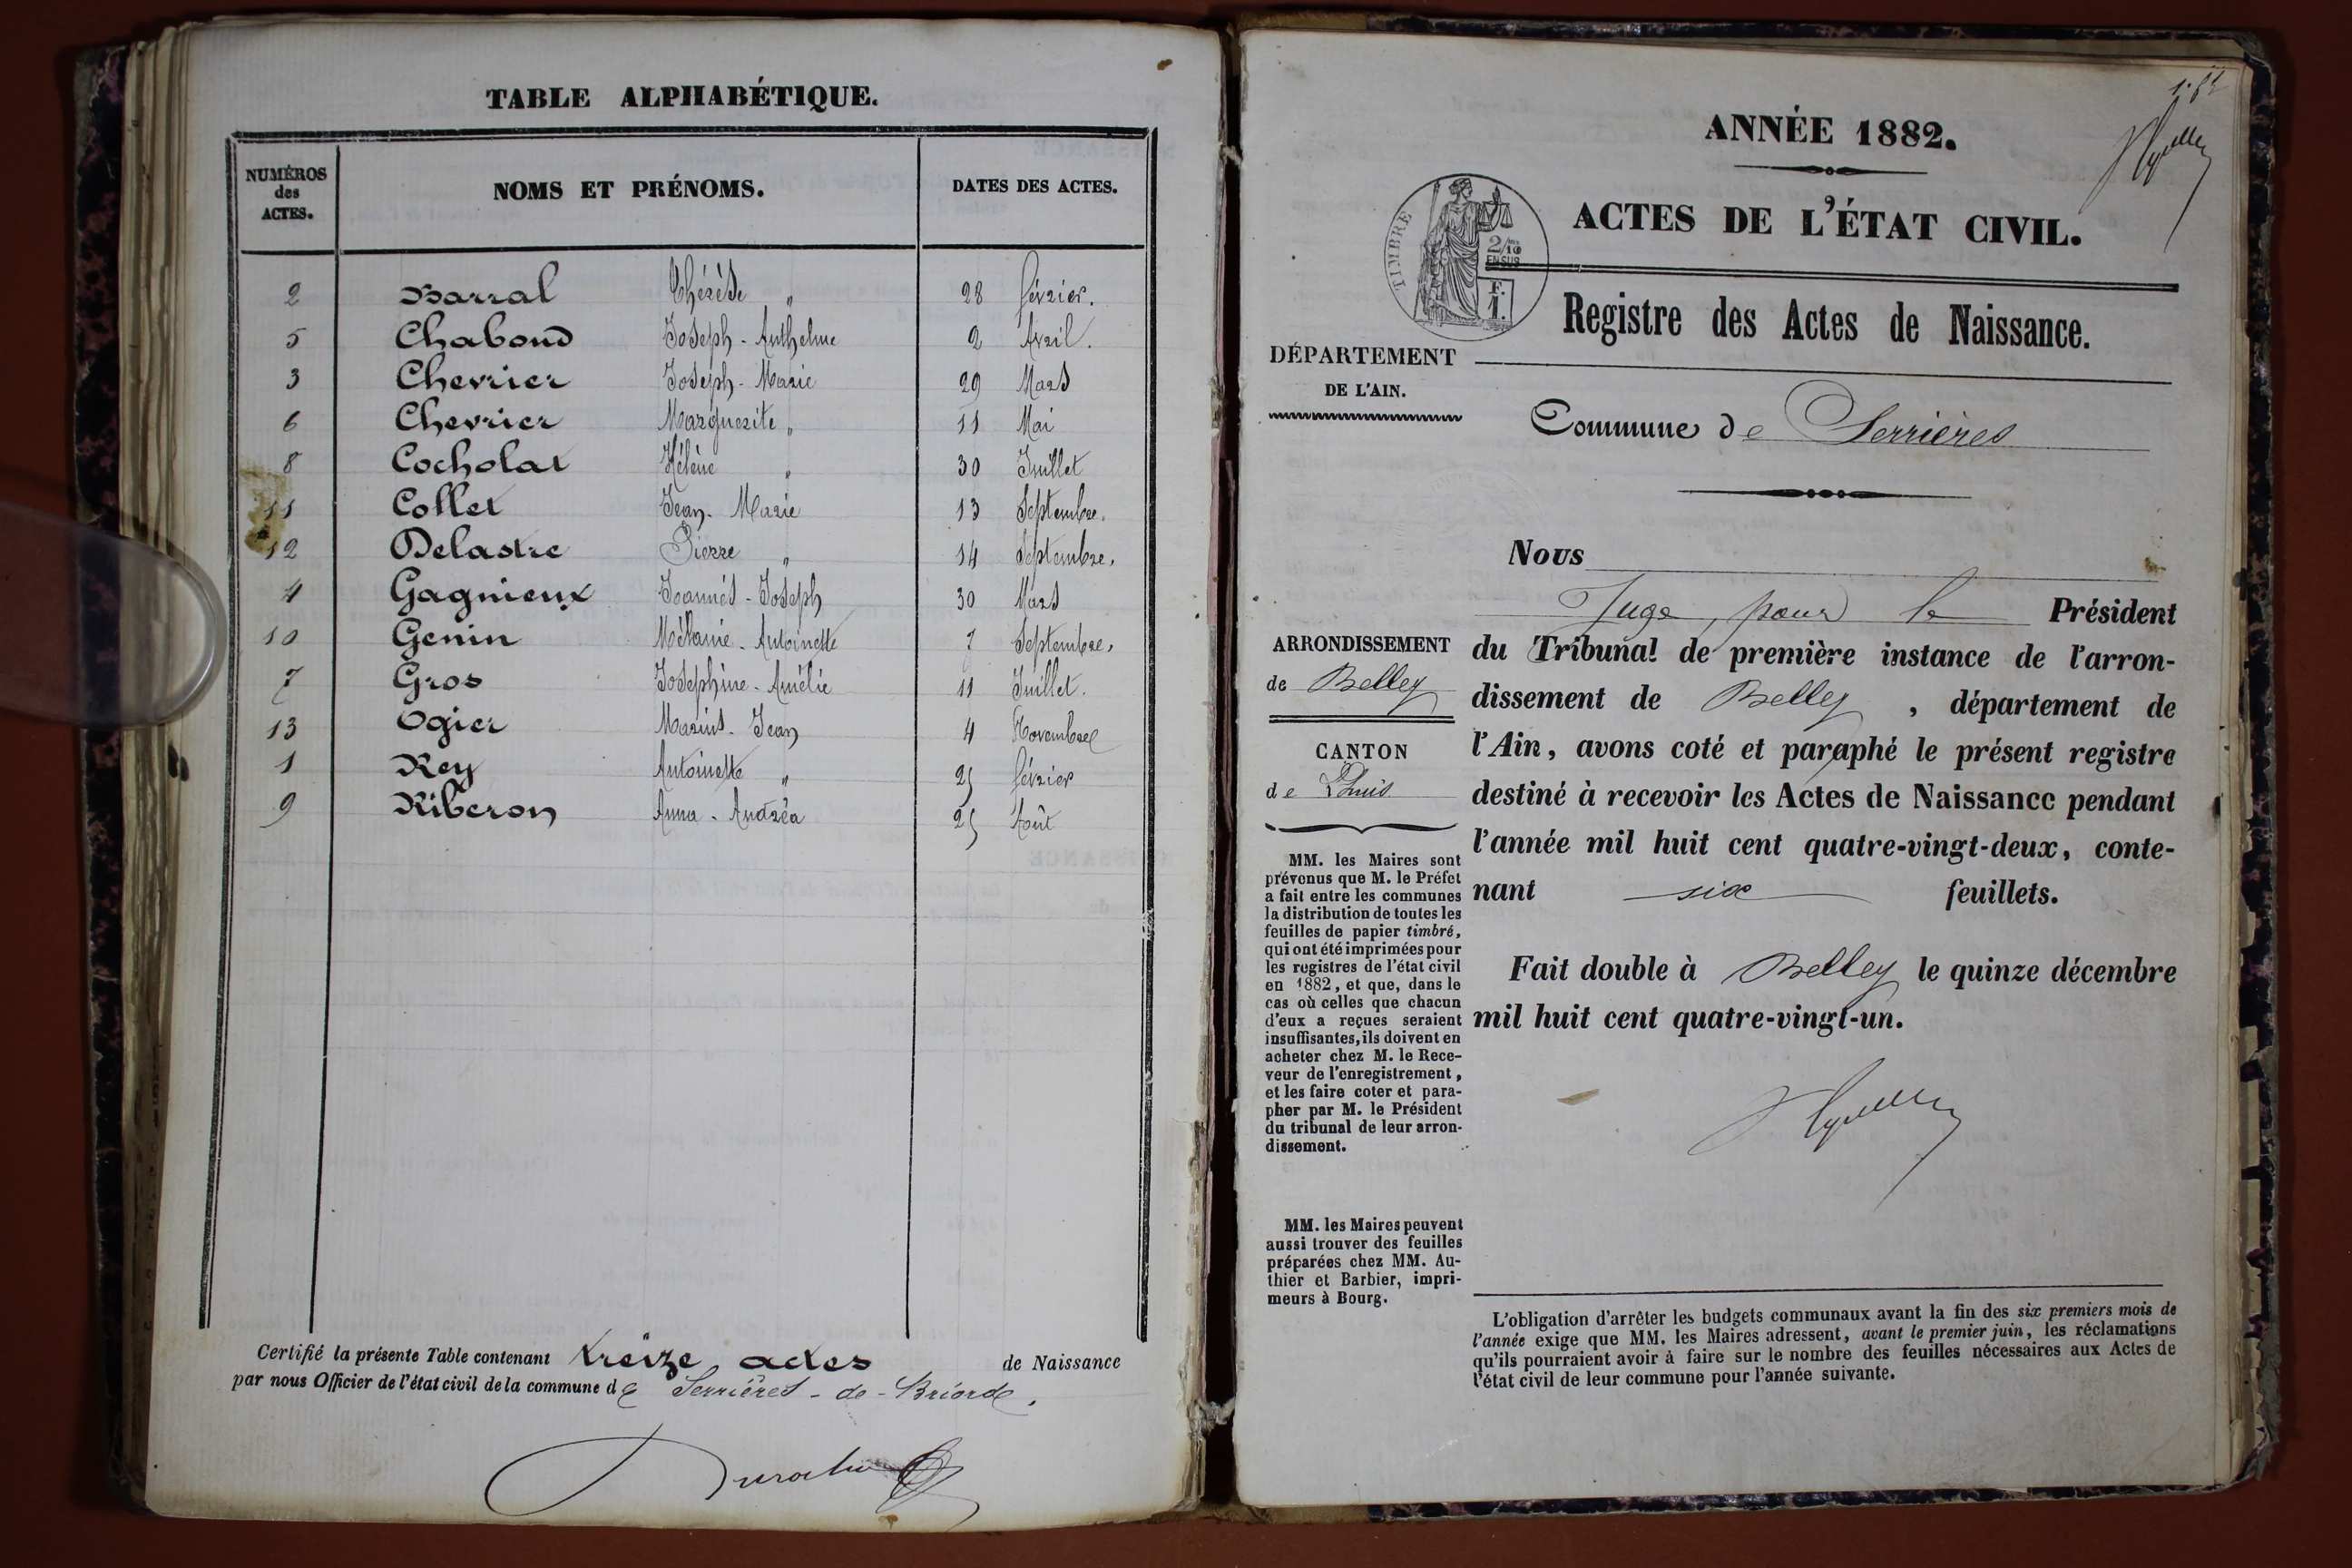 TABLE ALPHABÉTIQUE.
NUMÉROS des ACTES. NOMS ET PRÉNOMS. DATES DES ACTES.
2 Barral Thérèse " 28 février.
5 Chaboud Joseph - Anthelme 2 Avril.
3 Chevrier Joseph - Marie 29 Mars
6 Chevrier Marguerite " 11 Mai
8 Cocholat Hélène " 30 Juillet
11 Collet Jean - Marie 13 Septembre.
12 Delastre Pierre " 14 Septembre.
4 Gagnieux Joannès - Joseph 30 Mars
10 Genin Mélanie - Antoinette 7 Septembre.
7 Gros Joséphine - Amélie 11 Juillet.
13 Ogier Marius - Jean 4 Novembre
1 Rey Antoinette " 25 février
9 Riberon Anna - Andréa 25 Août
Certifié la présente Table contenant treize actes de Naissance
par nous Officier de l'état civil de la commune de Serrières - de - Briord.
ANNÉE 1882.
ACTES DE L'ÉTAT CIVIL.
TIMBRE
2/10
EN SUS
F.
1.
Registre des Actes de Naissance.
DÉPARTEMENT
DE L'AIN.
Commune de Serrières
Nous
Juge, pour le Président
du Tribunal de première instance de l'arron-
dissement de Belley, département de
l'Ain, avons coté et paraphé le présent registre
destiné à recevoir les Actes de Naissance pendant
l'année mil huit cent quatre-vingt-deux, conte-
nant six feuillets.
Fait double à Belley le quinze décembre
mil huit cent quatre-vingt-un.
ARRONDISSEMENT
de Belley
CANTON
de Lhuis
MM. les Maires sont
prévenus que M. le Préfet
a fait entre les communes
la distribution de toutes les
feuilles de papier timbré,
qui ont été imprimées pour
les registres de l'état civil
en 1882, et que, dans le
cas où celles que chacun
d'eux a reçues seraient
insuffisantes, ils doivent en
acheter chez M. le Rece-
veur de l'enregistrement,
et les faire coter et para-
pher par M. le Président
du tribunal de leur arron-
dissement.
MM. les Maires peuvent
aussi trouver des feuilles
préparées chez MM. Au-
thier et Barbier, impri-
meurs à Bourg.
L'obligation d'arrêter les budgets communaux avant la fin des six premiers mois de
l'année exige que MM. les Maires adressent, avant le premier juin, les réclamations
qu'ils pourraient avoir à faire sur le nombre des feuilles nécessaires aux Actes de
l'état civil de leur commune pour l'année suivante.